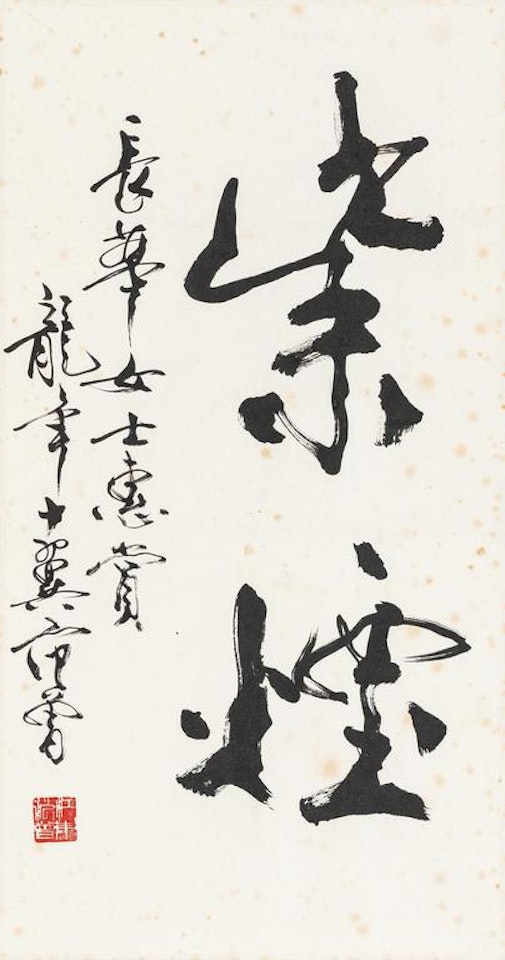 紫煙
長華女士惠賞
龍年十翼范曾